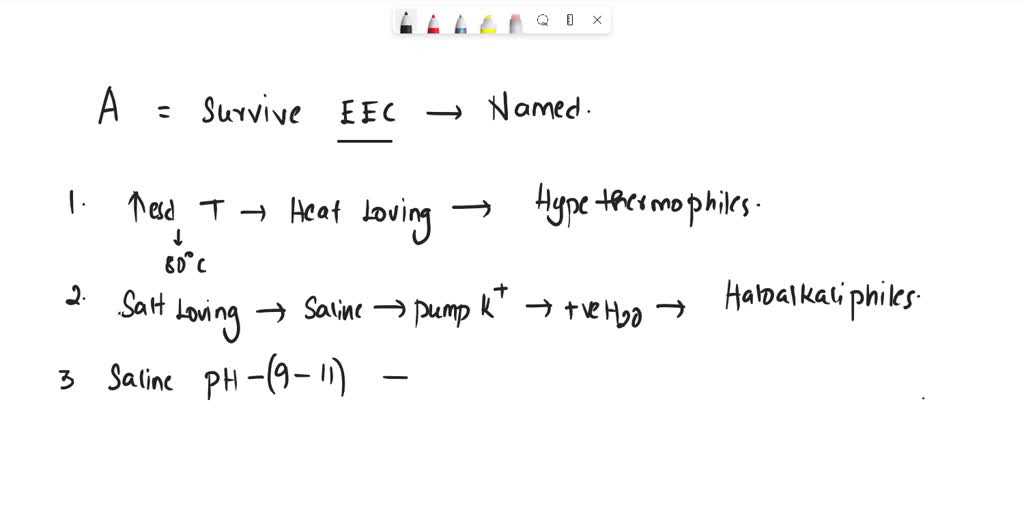 A = Survive EEC → Named.
1. ↑esd T → Heat Loving → Hype thermophiles.
↓
80°C
2. Salt Loving → Saline → pump K+ → +ve H2O → Haloalkaliphiles.
3 Saline pH -(9-11) —